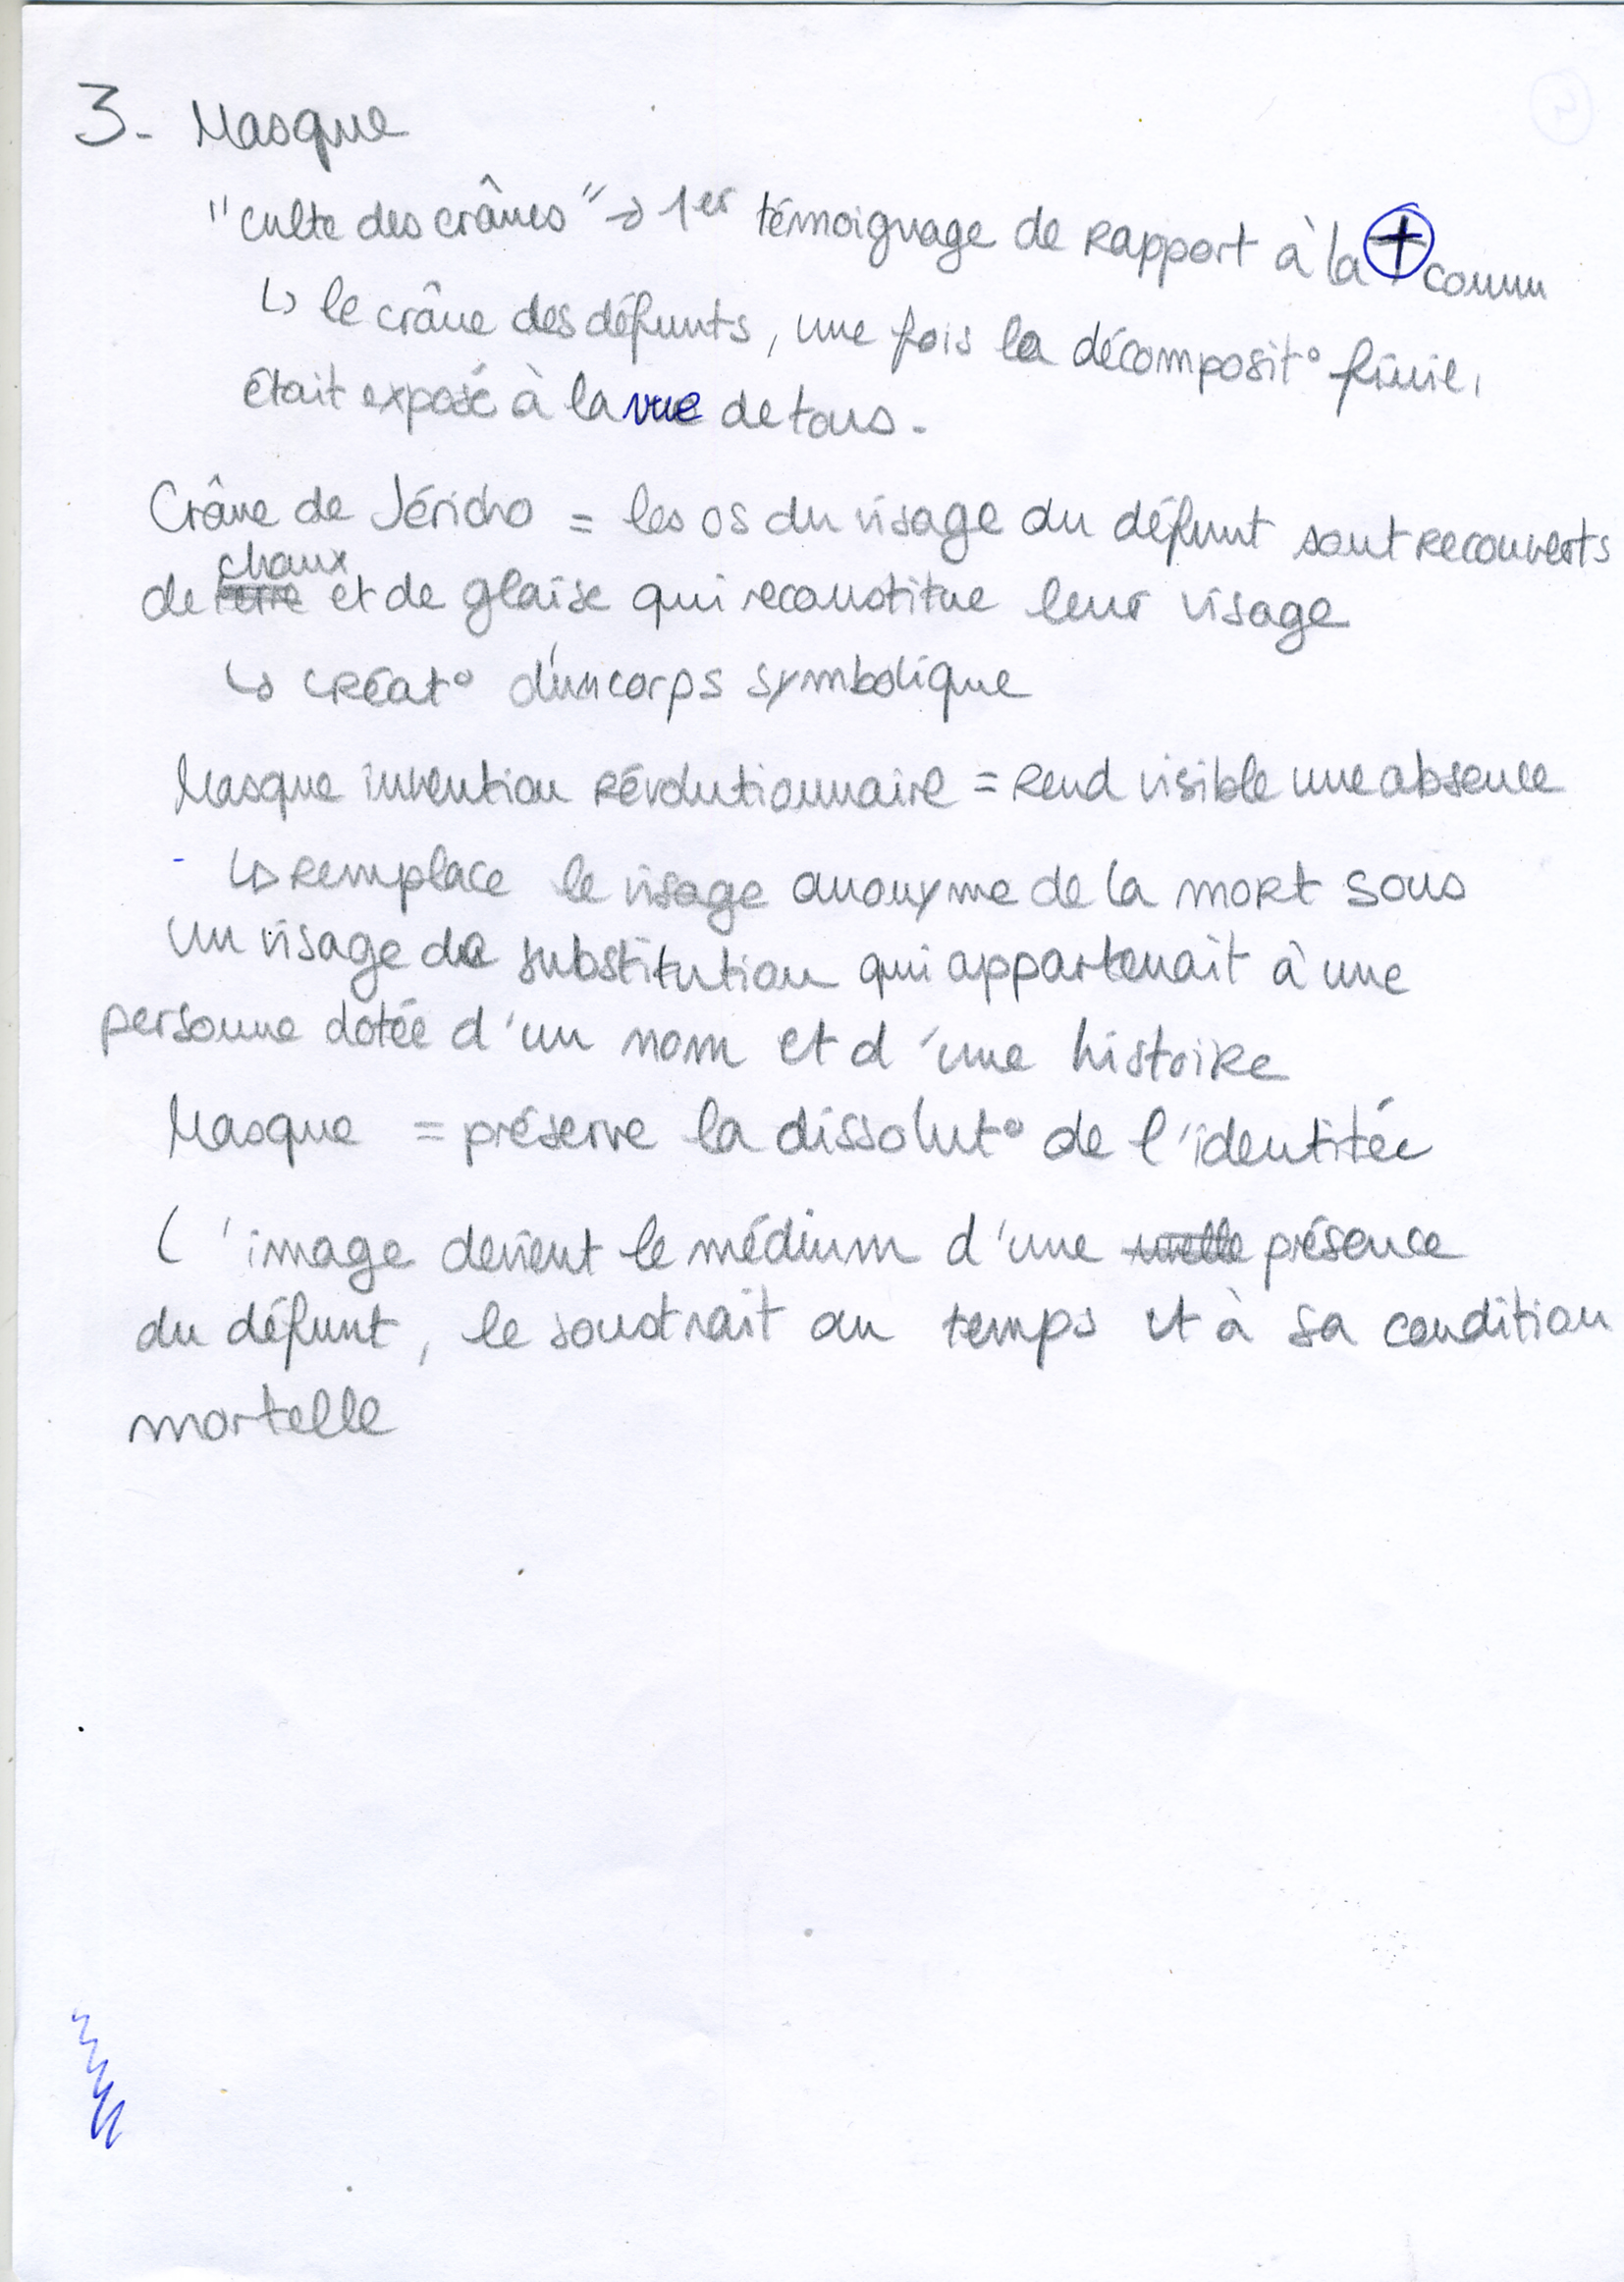 3- Masque
"culte des crânes" → 1er témoignage de rapport à la † connu
↳ le crâne des défunts, une fois la décomposit° finie,
était exposé à la vue de tous.
Crâne de Jéricho = les os du visage du défunt sont recouverts
chaux
de terre et de glaise qui reconstitue leur visage
↳ créat° d'un corps symbolique
Masque invention révolutionnaire = rend visible une absence
- ↳ remplace le visage anonyme de la mort sous
un visage de substitution qui appartenait à une
personne dotée d'un nom et d'une histoire
Masque = préserve la dissolut° de l'identitée
L'image devient le médium d'une présence
du défunt, le soustrait au temps et à sa condition
mortelle